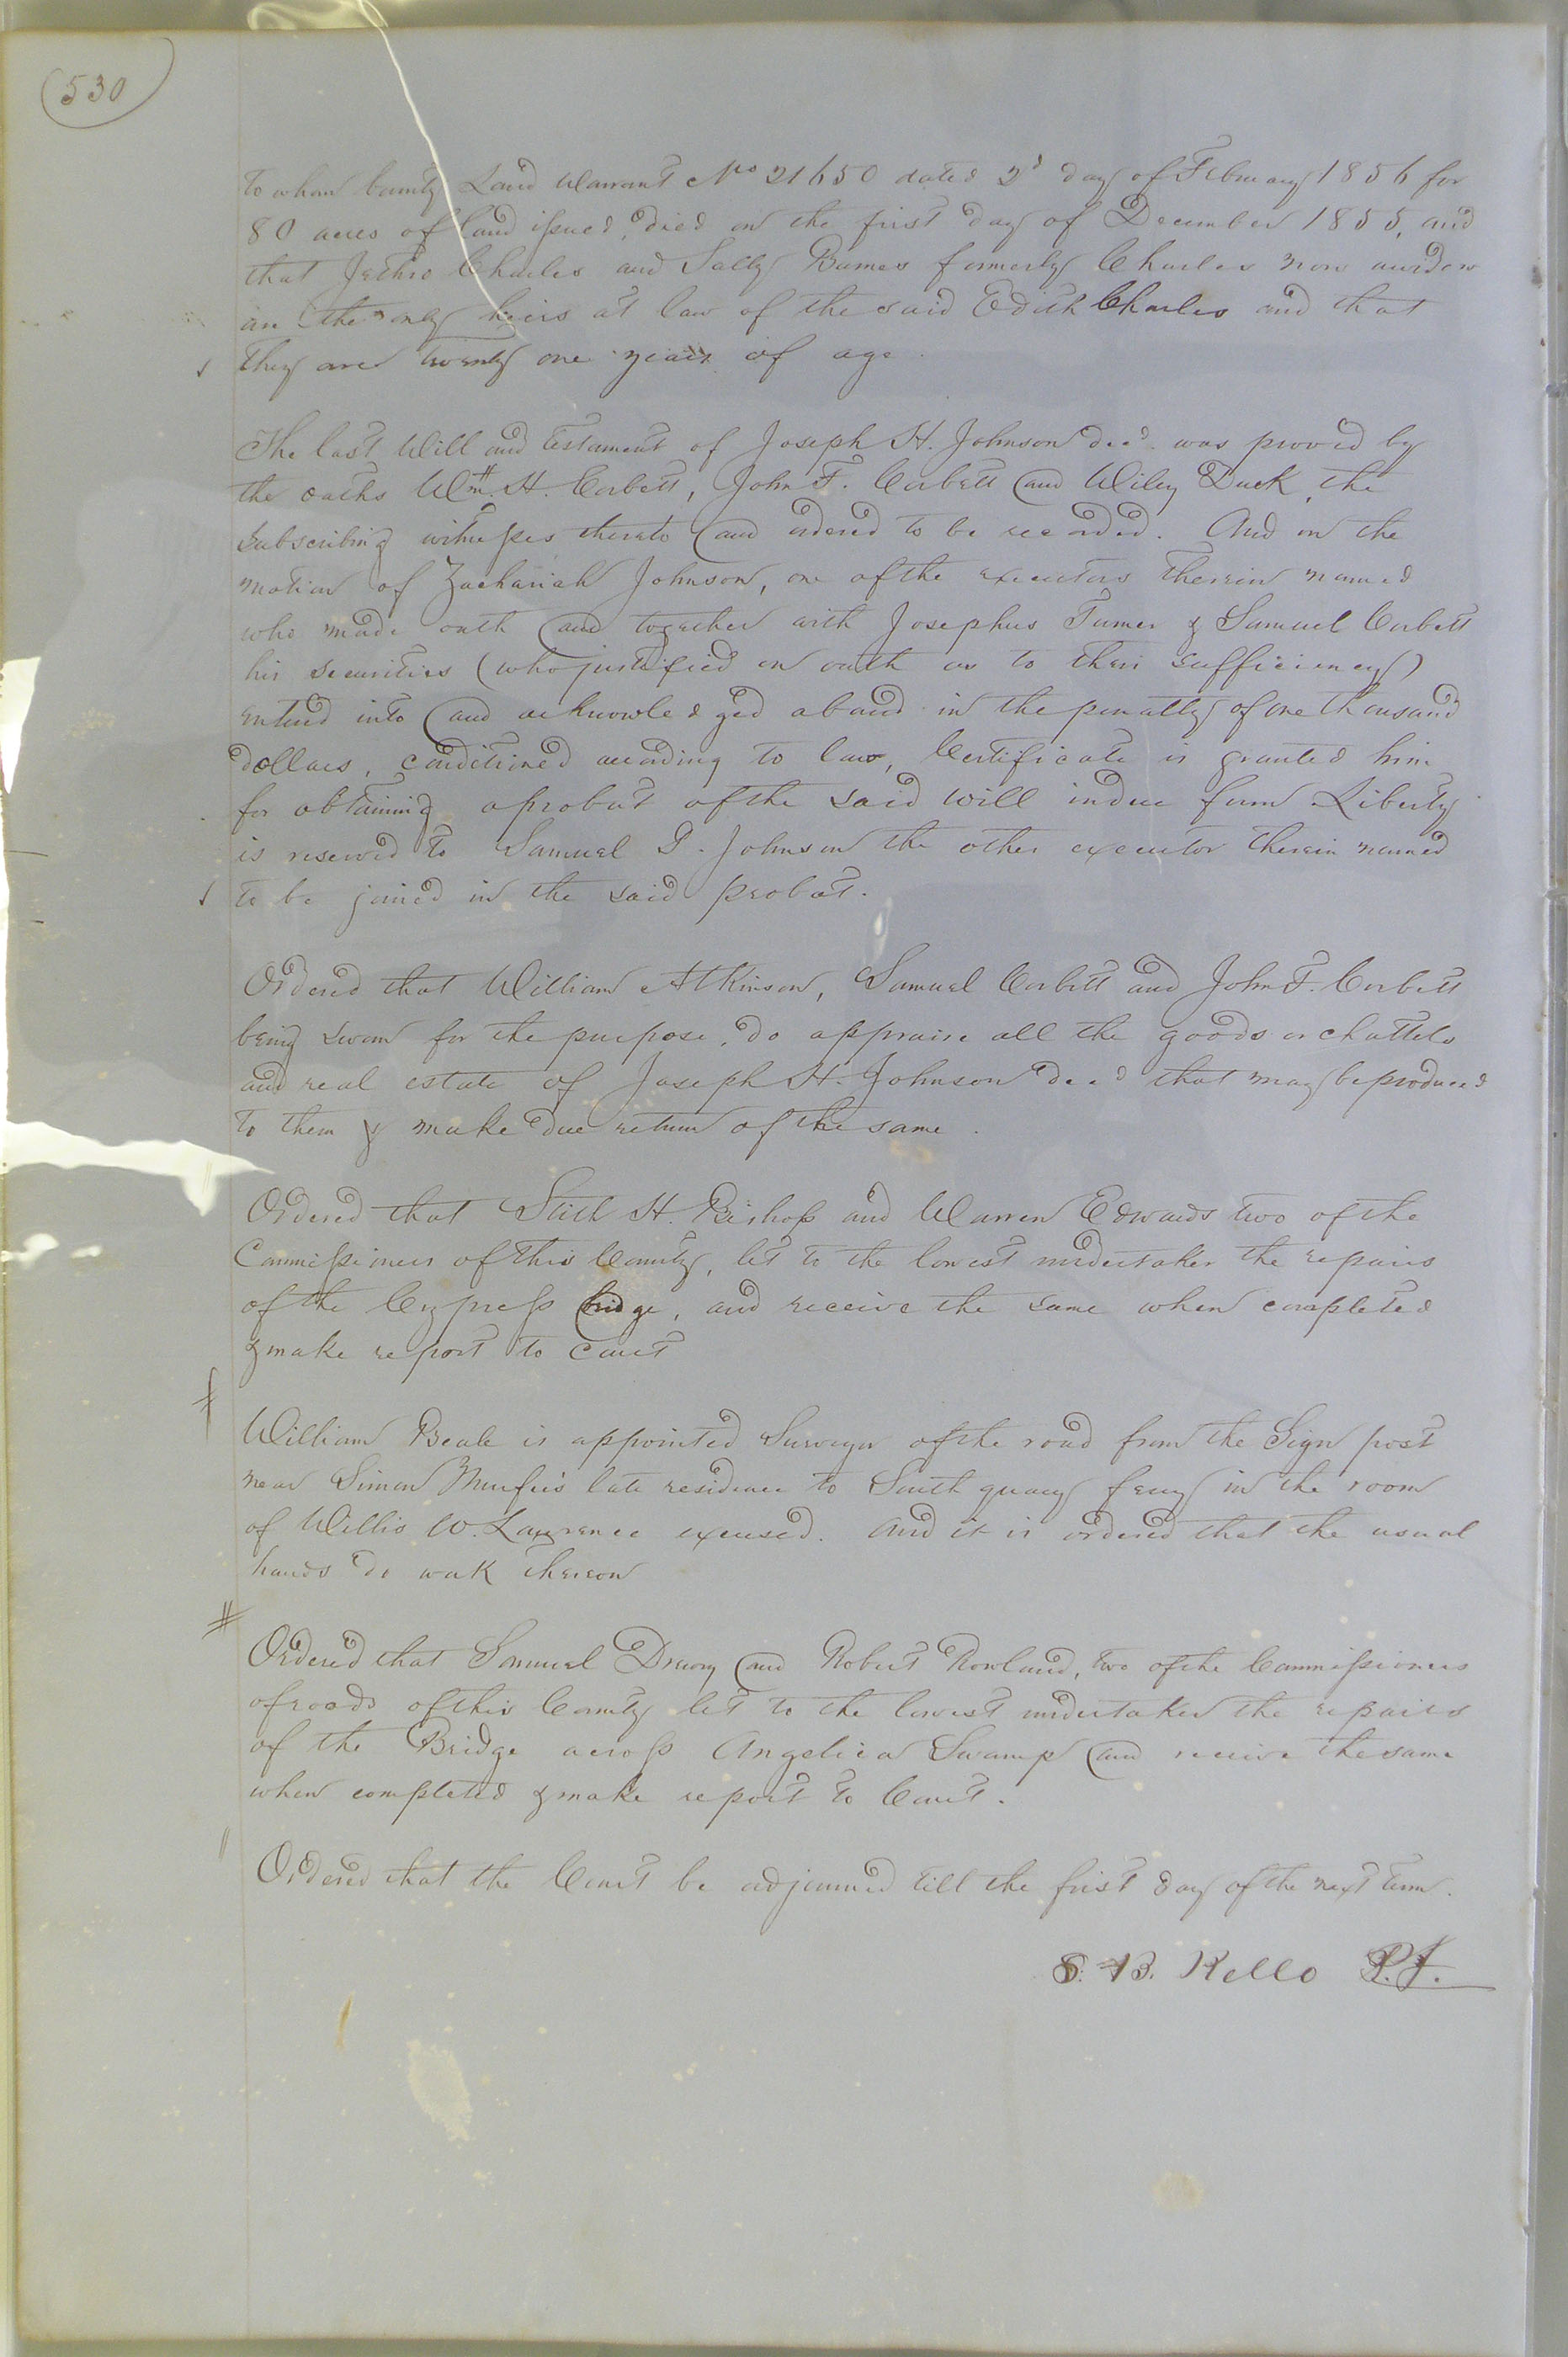 530
to whom bounty Land Warrant No 21650 dated 2d day of February 1856 for
80 acres of land issued, died on the first day of December 1855, and
that Jethro Charles and Sally Barnes formerly Charles now widow
are the only heirs at law of the said Edith Charles and that
they are twenty one years of age.
The last Will and testament of Joseph H. Johnson decd. was proved by
the oaths Wm. H. Corbett, John F. Corbett and Wiley Duck, the
subscribing witnesses thereto and ordered to be recorded. And on the
motion of Zachariah Johnson, one of the executors therein named
who made oath and together with Josephus Turner & Samuel Corbett
his securities (who justified on oath as to their sufficiency)
entered into and acknowledged a bond in the penalty of one thousand
dollars, conditioned according to law, Certificate is granted him
for obtaining a probat of the said will in due form. Liberty
is reserved to Samuel Johnson the other executor therein named
to be joined in the said probat.
Ordered that William Atkinson, Samuel Corbett and John F. Corbett
being sworn for the purpose, do appraise all the goods or chattels
and real estate of Joseph H. Johnson decd that may be produced
to them & make due return of the same.
Ordered that Stith H. Bishop and Warren Edwards two of the
Commissioners of this County, let to the lowest undertaker the repairs
of the Cypress bridge, and receive the same when completed
& make report to Court
William Beale is appointed Surveyor of the road from the Sign post
near Simon Murfee's late residence to South quay ferry in the room
of Willis W. Lawrence excused. And it is ordered that the usual
hands do work thereon
Ordered that Samuel Drewry and Robert Rowland, two of the Commissioners
of roads of this County let to the lowest undertaker the repairs
of the Bridge across Angelica Swamp and receive the same
when completed & make report to Court.
Ordered that the Court be adjourned till the first day of the next term.
S. B. Kello P.J.